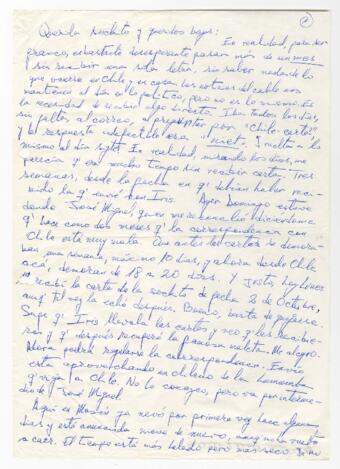 ①
Querida suchita y queridos bajos:
En realidad, para ser
franco, es bastante desesperante pasar más de un mes
sin recibir una sola letra, sin saber nada de lo
que ocurre en Chile, y en casa. Las noticias del cable nos
mantienen al día en lo político, pero no es lo mismo. Es
la necesidad de recibir algo directo. Iba todos los días,
sin faltar al correo, al preguntar por "Chile-cartas"
y la respuesta indefectible era "niet". I vuelta a lo
mismo al día sgte. En realidad, mirando los días, me
parecía q' era mucho tiempo sin recibir carta. Tres
semanas, desde la fecha en q' debían haber re-
cibido la q' envié con Iris. Ayer Domingo estuve
donde José Miguel, quien me consoló diciéndome
q' hace como dos meses q' la correspondencia con
Chile está muy mala. Que antes las cartas se demora-
ban una semana, máximo 10 días, y ahora desde Chile
acá, demoran de 18 a 20 días. Y justo, hoy lunes
recibí la carta de la suchita de fecha 2 de Octubre,
aunq' tal vez la echó después. Bueno, basta de quejarse.
Supe q' Iris llevaba las cartas y veo q' las recibie-
ron y q' después recuperó la famosa maleta. Me alegro.
Ahora podrá regularse la correspondencia. Envío
esta aprovechando un chileno de la
q' viaja a Chile. No lo conozco, pero va por interme-
dio de José Miguel.
Aquí en Moscú ya nevó por primera vez hace algunos
días y está amenazando nieve de nuevo, muy
a caer. El tiempo está más helado pero más seco. Yo no